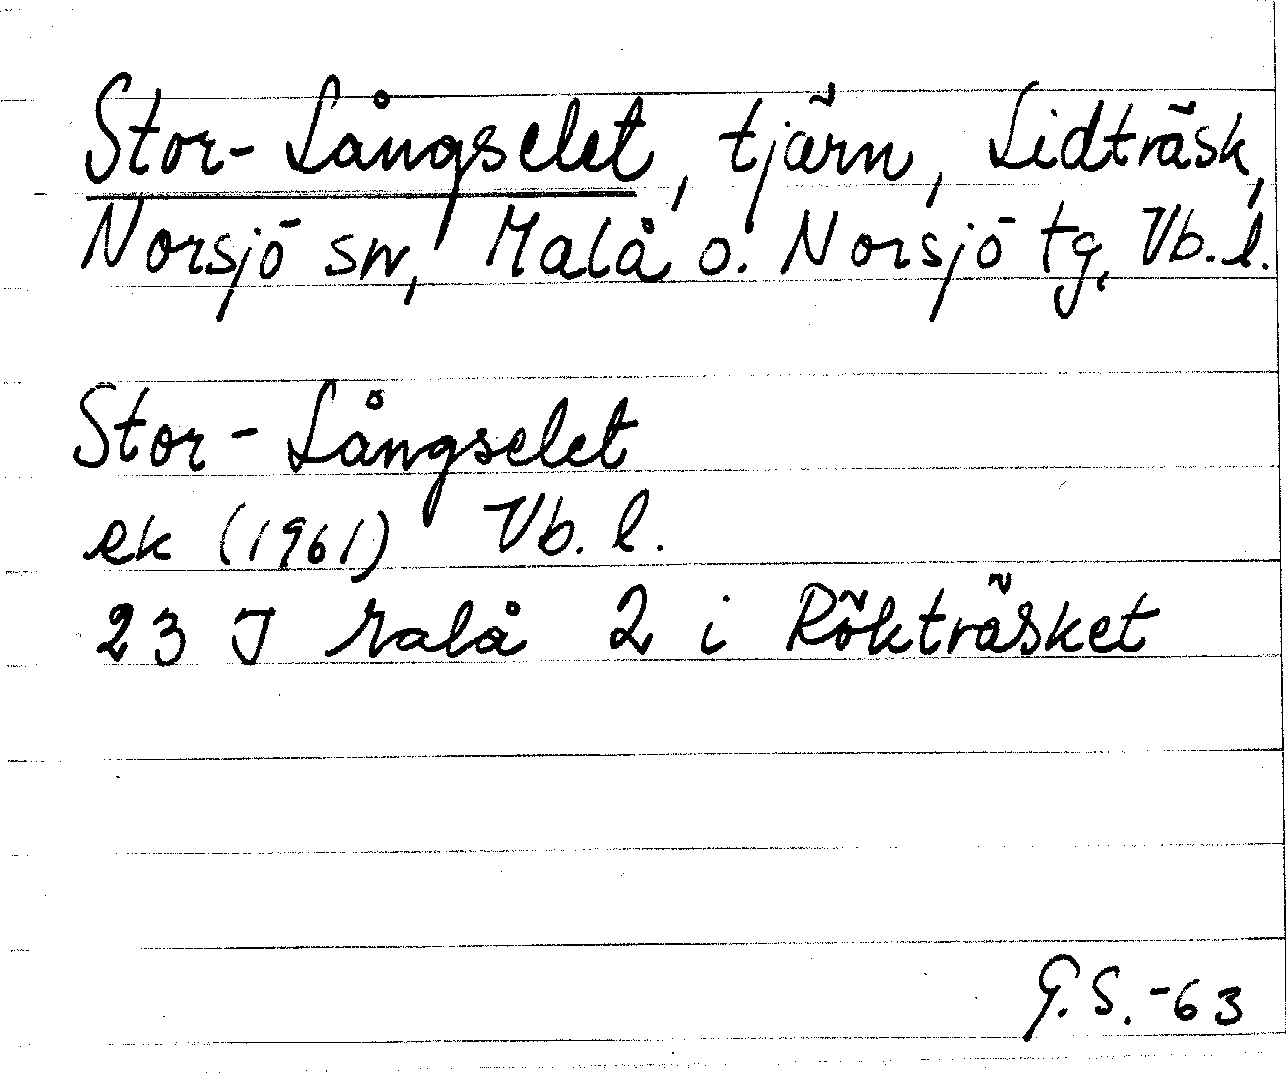 Stor-Långselet, tjärn, Lidträsk,
Norsjö sn, Malå o. Norsjö tg, Vb. l.
Stor-Långselet
ek (1961) Vb. l.
23 J Malå 2 i Rökträsket
G.S.-63